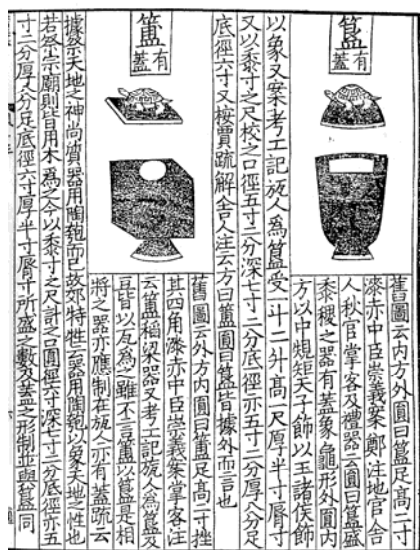 簋
有蓋
舊圖云内方外圓曰簋足高二寸
漆赤中臣崇義案鄭注地官舍
人秋官掌客及禮器云圓曰簋盛
黍稷之器有蓋象龜形外圓内
方以中規矩天子飾以玉諸侯飾
以象又案考工記瓬人為簋受一斗二升高一尺厚半寸脣寸
又以黍寸之尺校之口徑五寸二分深七寸二分底徑亦五寸二分厚八分足
底徑六寸又桉賈疏解舍人注云方曰簠圓曰簋皆據外而言也
簠
有蓋
舊圖云外方内圓曰簠足高二寸挫
其四角漆赤中臣崇義案掌客注
云簠稻梁器又考工記瓬人為簋及
豆皆以瓦為之雖不言簠以簋是相
將之器亦應制在瓬人亦有蓋疏云
據祭天地之神尚質器用陶匏而已故郊特牲云器用陶匏以象天地之性也
若祭宗廟則皆用木為之今以黍寸之尺計之口圓徑六寸深七寸二分底徑亦五
寸二分厚八分足底徑六寸厚半寸脣寸所盛之數及蓋之形制並與簋同